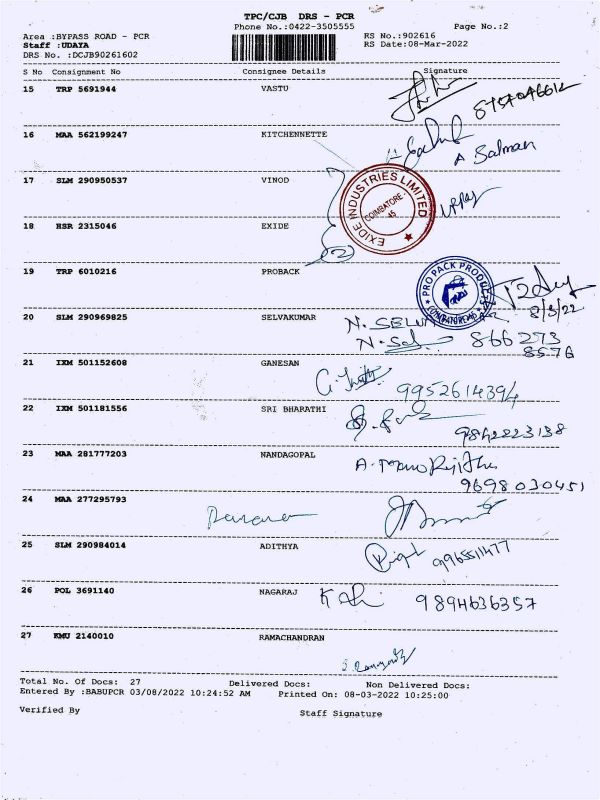 TPC/CJB DRS - PCR
Phone No.:0422-3505555
Page No.:2
Area :BYPASS ROAD - PCR
RS No.:902616
Staff :UDAYA
RS Date:08-Mar-2022
DRS No. :DCJB90261602
S No Consignment No Consignee Details Signature
15 TRP 5691944 VASTU
16 MAA 562199247 KITCHENNETTE
A Salman
17 SLM 290950537 VINOD
EXIDE INDUSTRIES LIMITED
COIMBATORE
45
18 HSR 2315046 EXIDE
19 TRP 6010216 PROBACK
PRO PACK PRODUCTS
8/3/22
20 SLM 290969825 SELVAKUMAR
866 273
8576
21 IXM 501152608 GANESAN
9952614394
22 IXM 501181556 SRI BHARATHI
9842223138
23 MAA 281777203 NANDAGOPAL
9698030451
24 MAA 277295793
25 SLM 290984014 ADITHYA
9965511477
26 POL 3691140 NAGARAJ
9894636357
27 KMU 2140010 RAMACHANDRAN
Total No. Of Docs: 27 Delivered Docs: Non Delivered Docs:
Entered By :BABUPCR 03/08/2022 10:24:52 AM Printed On: 08-03-2022 10:25:00
Verified By Staff Signature